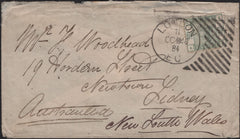 LONDON
84
E.C
Mr T. Woodhead
19 Hordern Street
Newtown Sidney
Australia
New South Wales